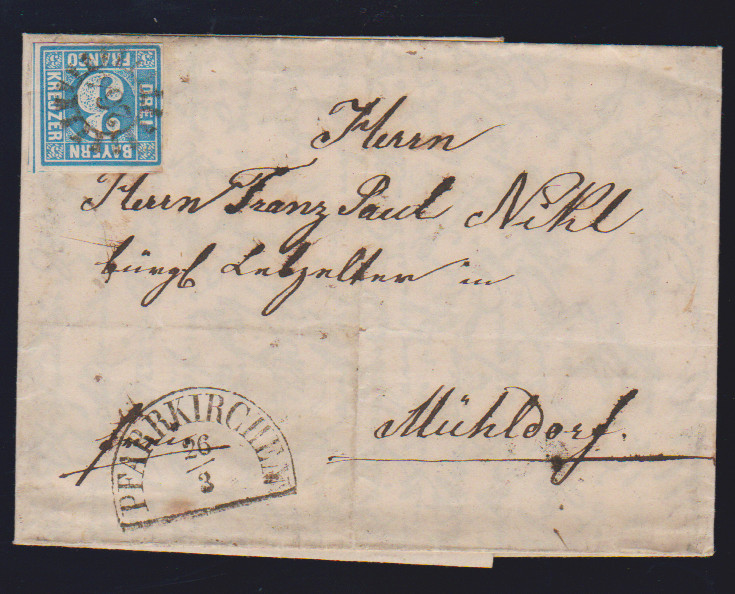 FRANCO
DREI
BAYERN
KREUZER
3
Herrn
Herrn Franz Paul Nikl
bürgl Lebzelter in
Mühldorf.
PFARRKIRCHEN
26
3